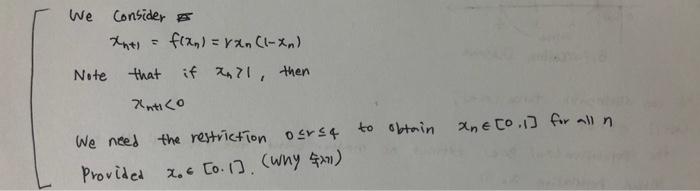 We Consider
x_{n+1} = f(x_n) = rx_n(1-x_n)
Note that if x_n > 1, then
x_{n+1} < 0
We need the restriction 0 ≤ r ≤ 4 to obtain x_n ∈ [0.1] for all n
Provided x_0 ∈ [0.1]. (Why 숙제)